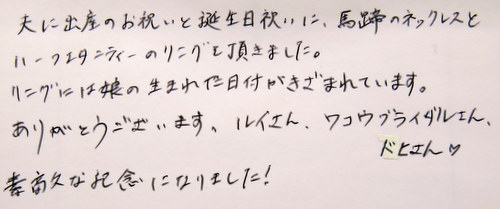 夫に出産のお祝いと誕生日祝いに、馬蹄のネックレスと
ハーフエタニティーのリングを頂きました。
リングには娘の生まれた日付がきざまれています。
ありがとうございます。ルイさん、ワコウブライダルさん、
ドヒさん♡
素高久な記念になりました!